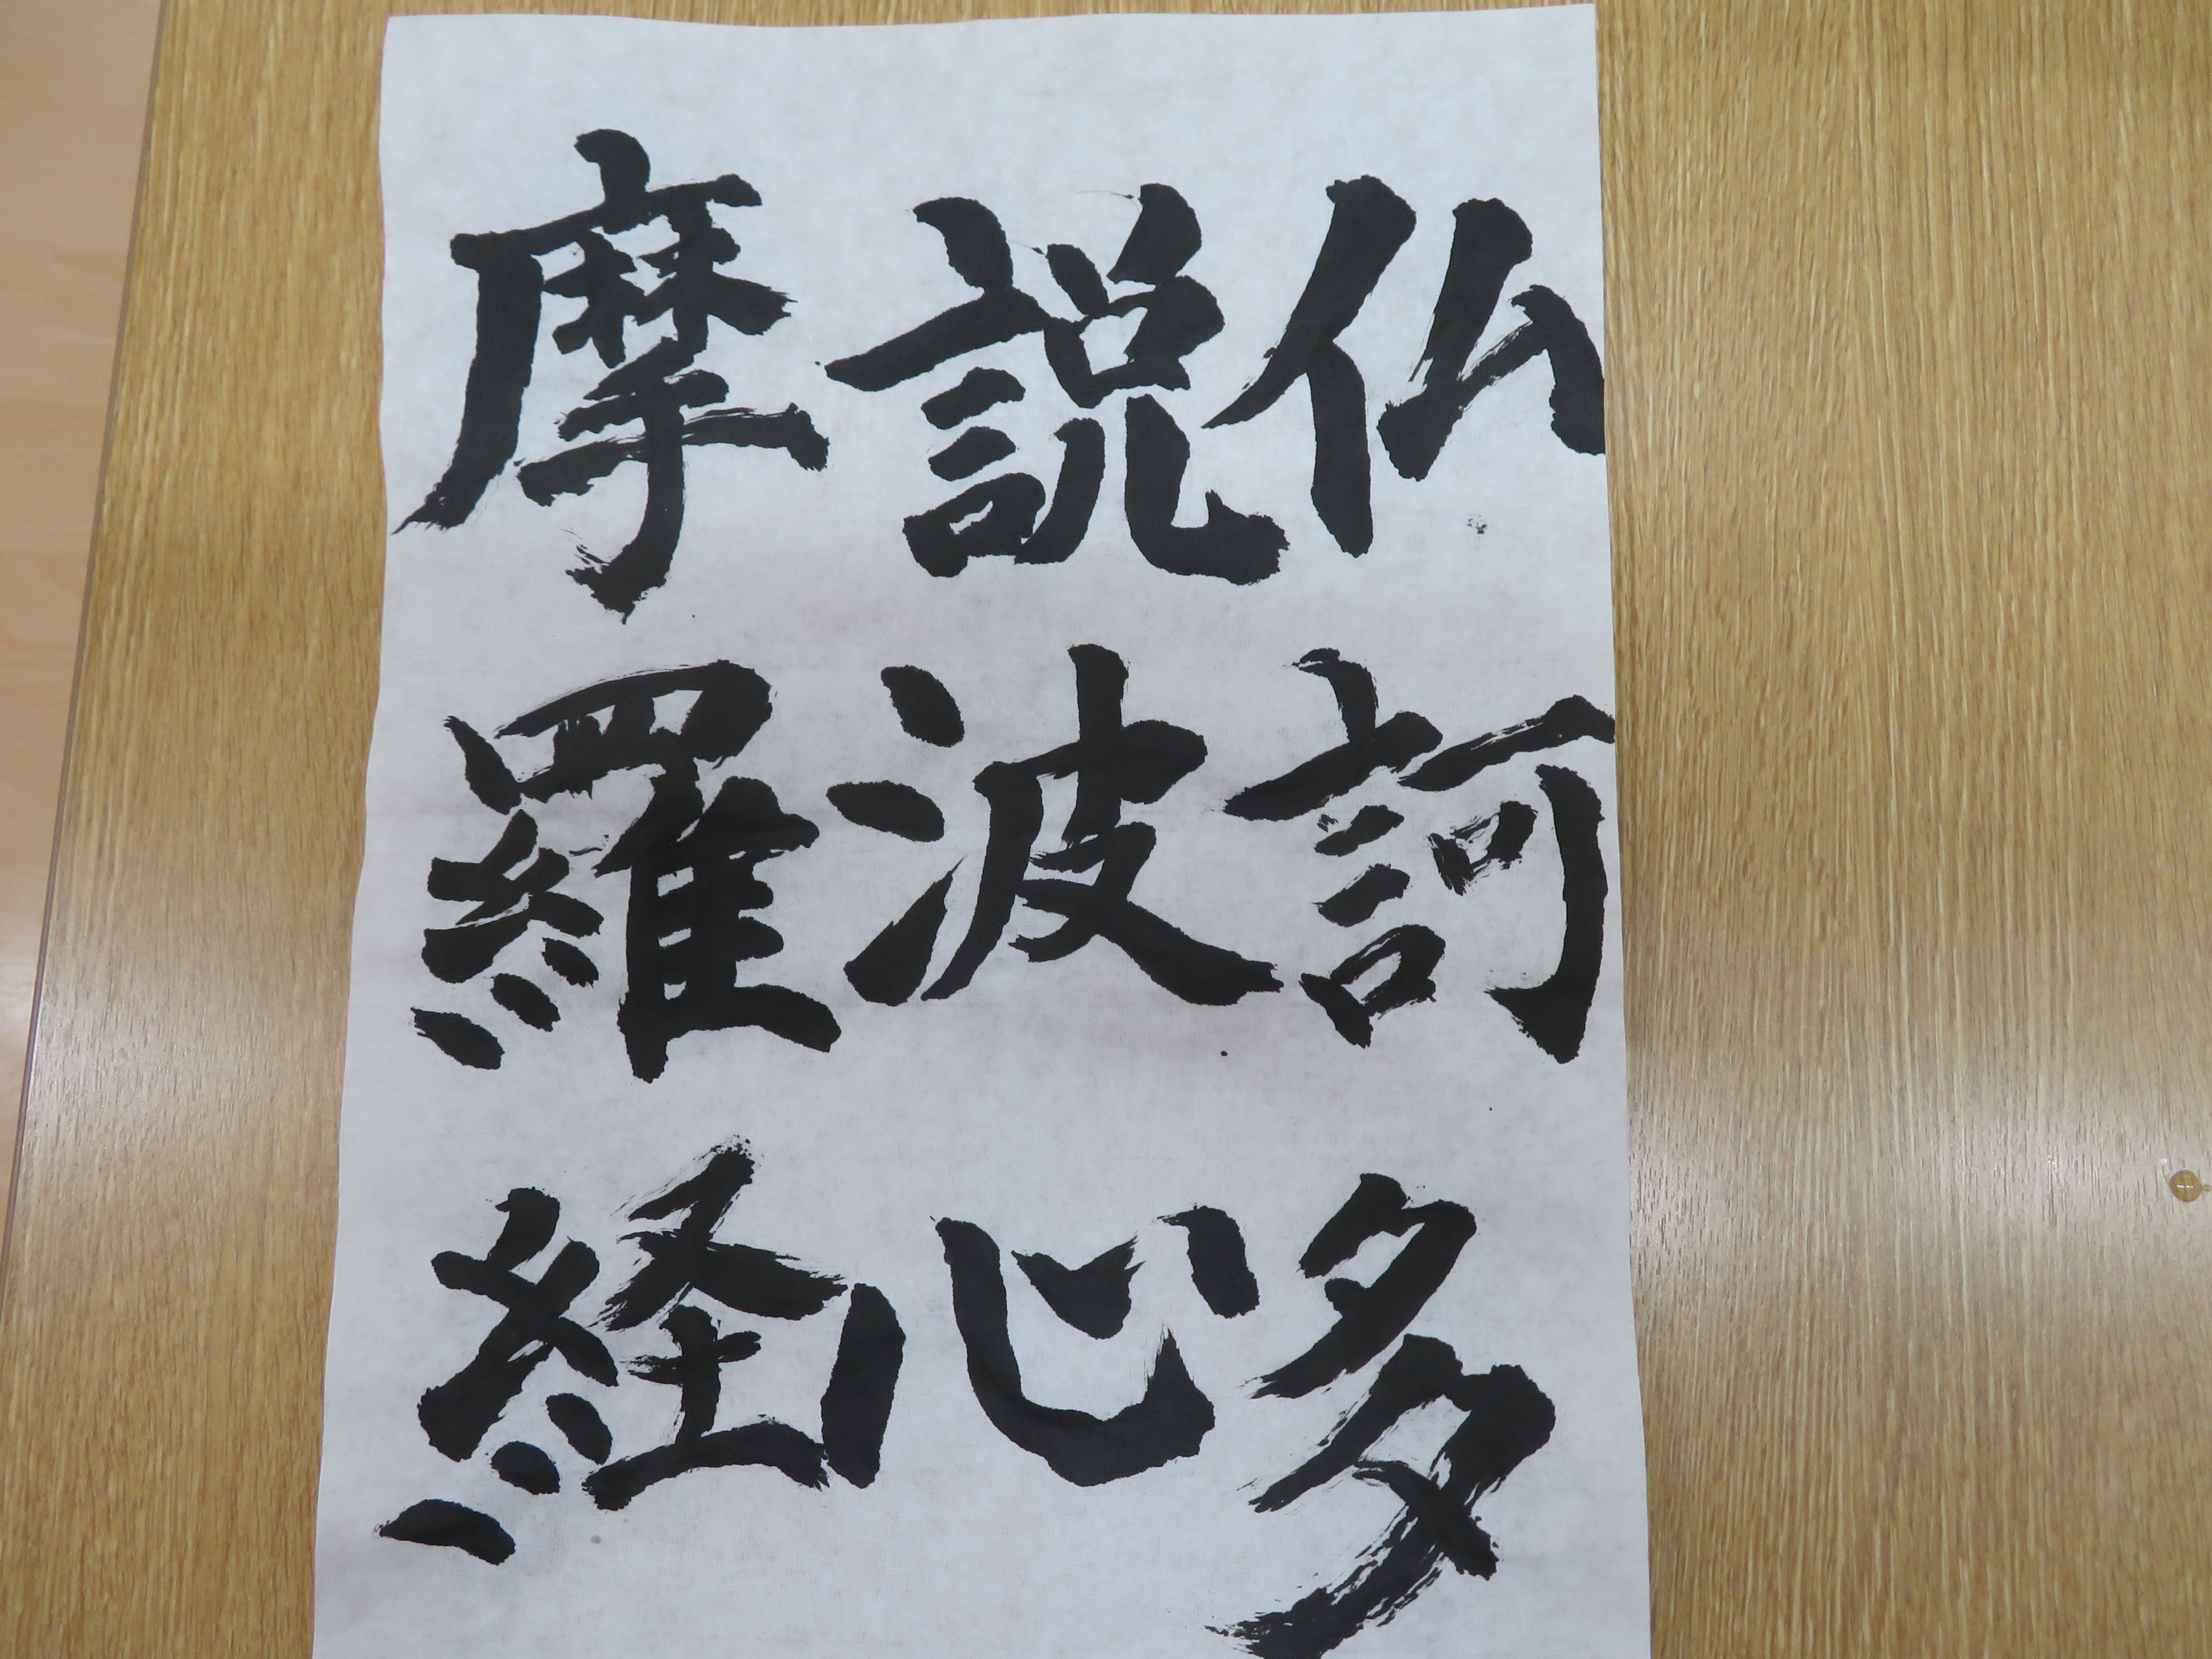 仏説摩
訶波羅
多心経